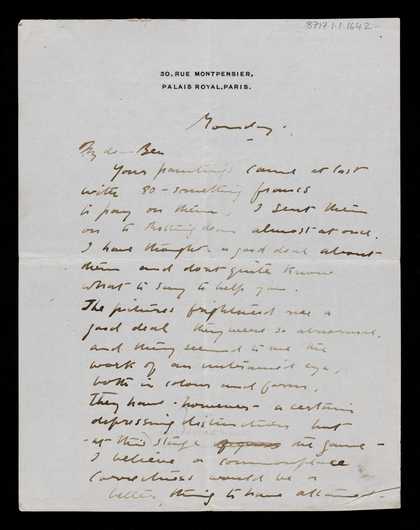 8717.1.1.1642
30, RUE MONTPENSIER,
PALAIS ROYAL, PARIS.
Monday.
My dear Ben
Your paintings came at last
with 80-something francs
to pay on them. I sent them
on to almost at once.
I have thought a good deal about
them and dont quite know
what to say to help you.
The pictures frightened me a
good deal they were so abnormal.
and they seemed to me the
work of an untrained eye,
both in colour and form,
They have - however - a certain
depressing distinction but
- at this stage the game -
I believe a commonplace
correctness would be a
better thing to have attained -